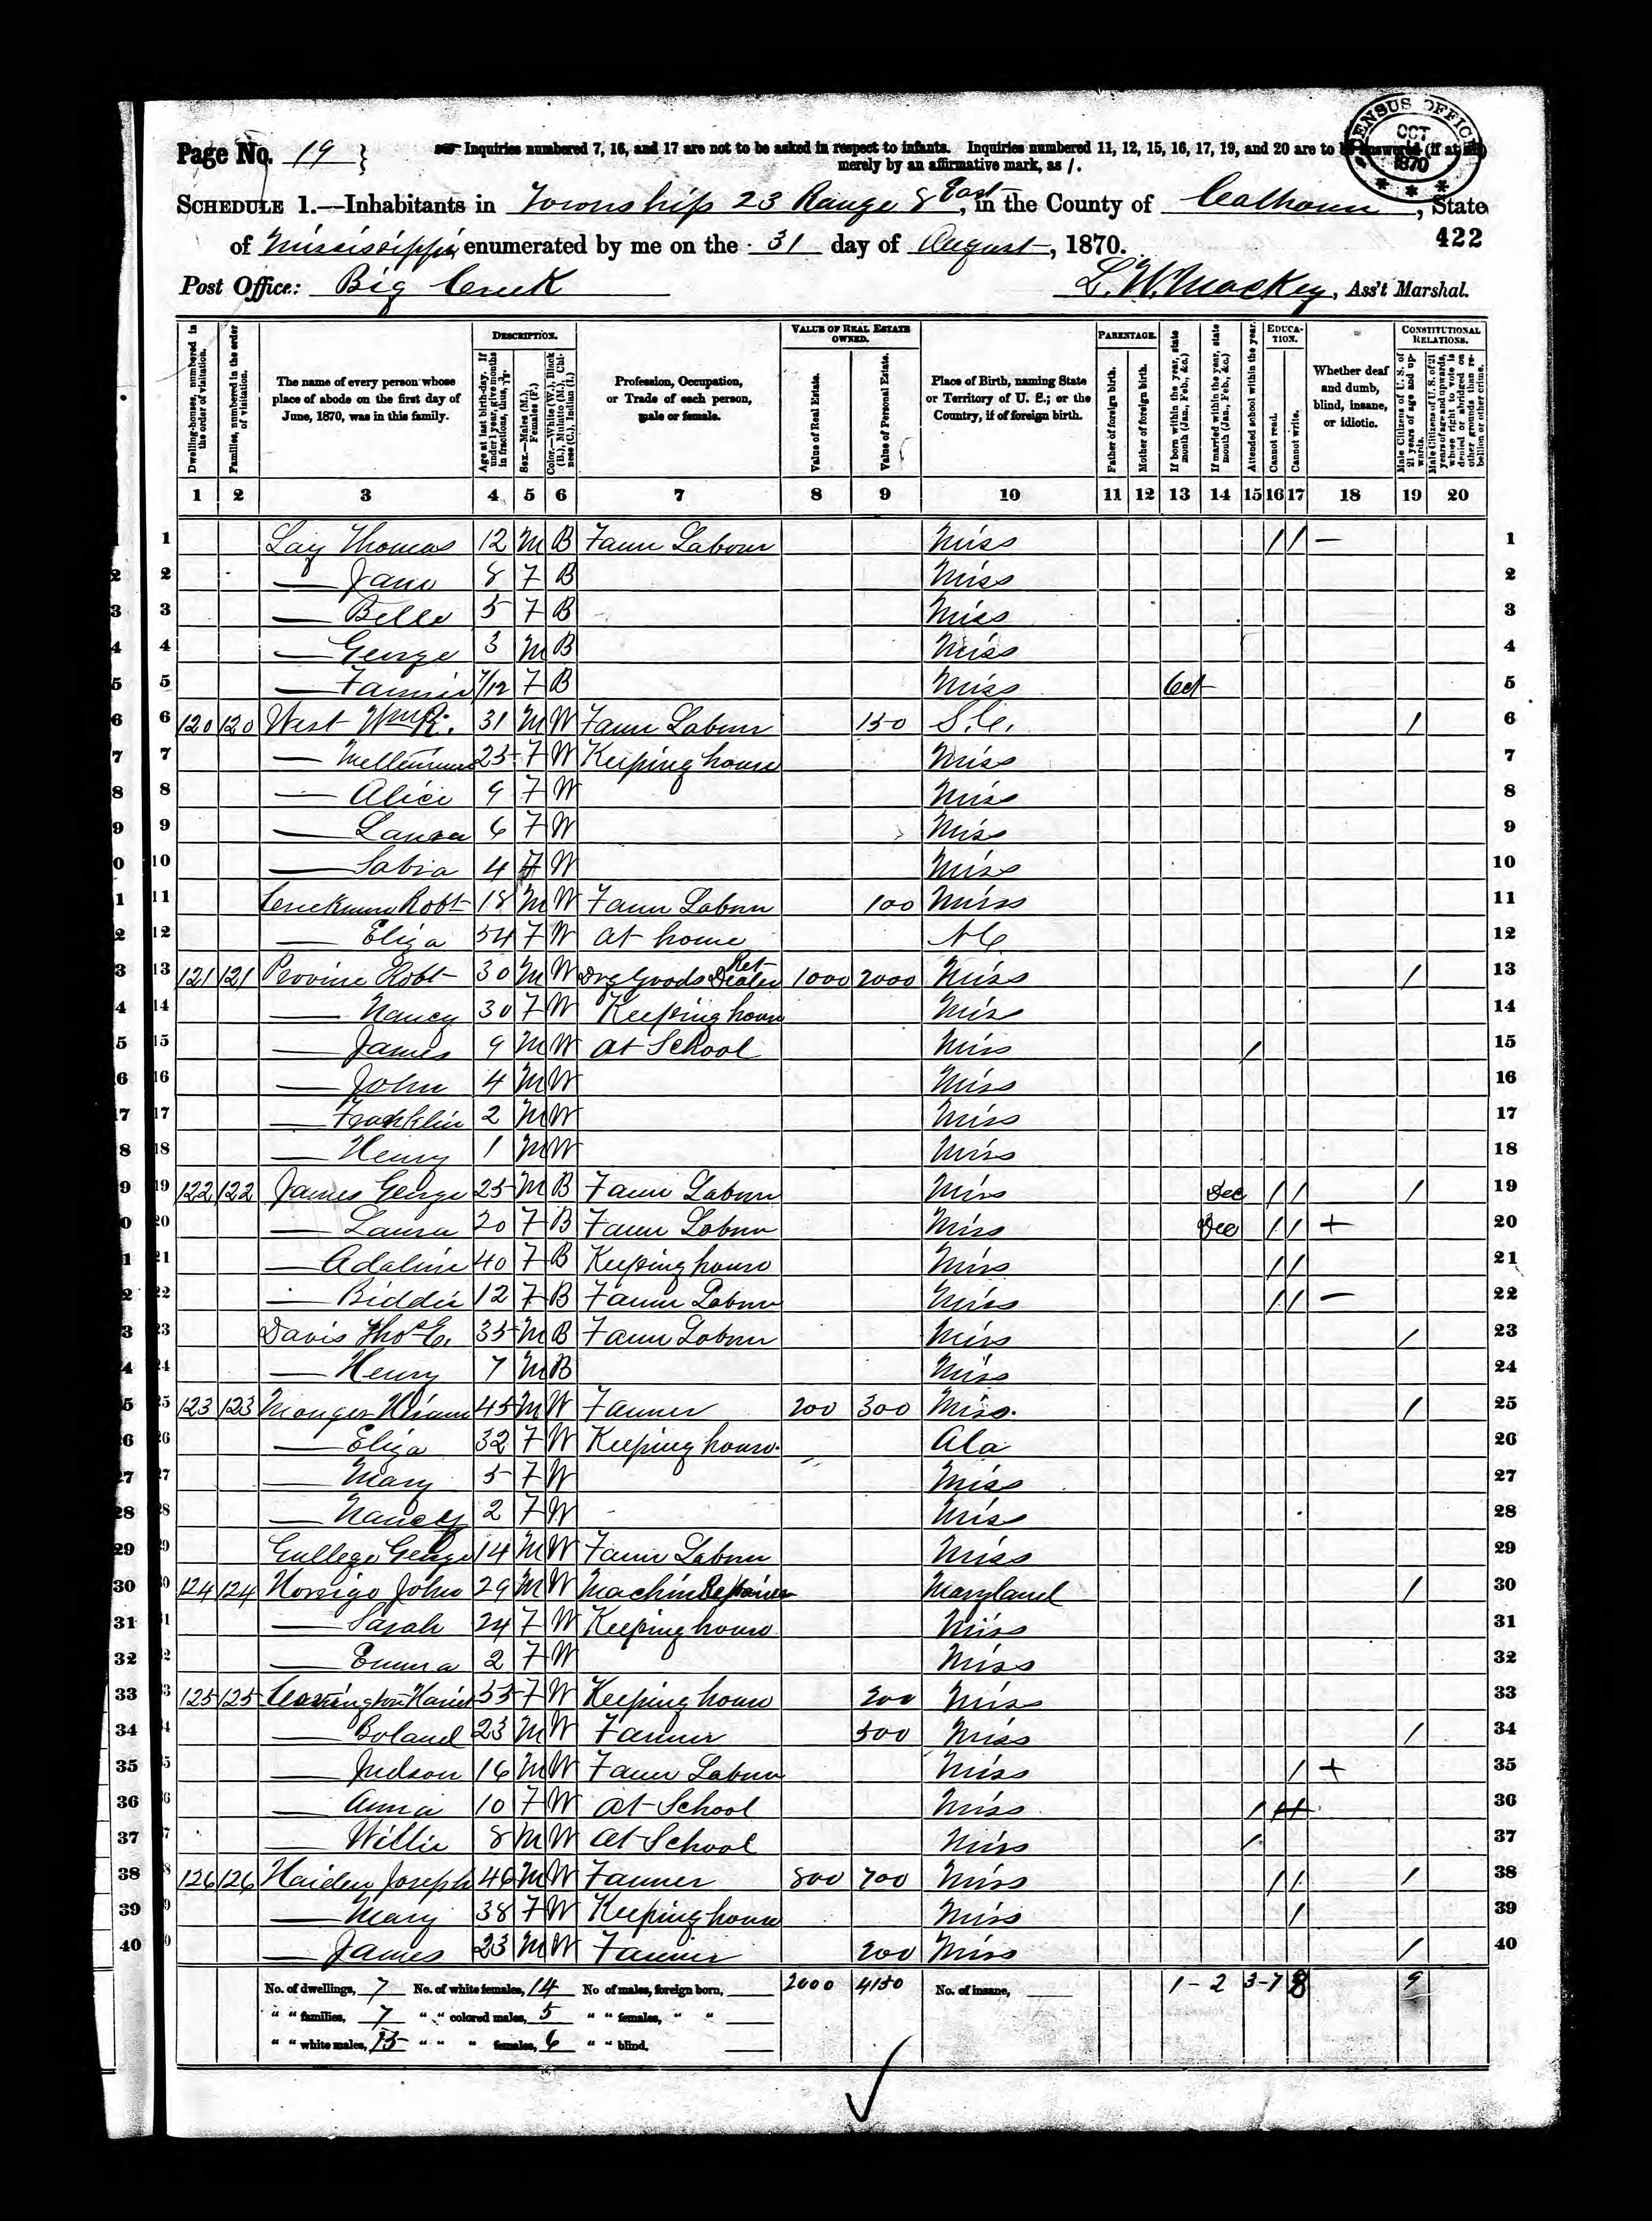 Page No. 19
Inquiries numbered 7, 16, and 17 are not to be asked in respect to infants. Inquiries numbered 11, 12, 15, 16, 17, 19, and 20 are to be answered (if at all)
merely by an affirmative mark, as /.
CENSUS OFFICE OCT 1870
SCHEDULE 1.—Inhabitants in Township 23 Range 8 East, in the County of Calhoun, State
of Mississippi, enumerated by me on the 31 day of August, 1870.
422
Post Office: Big Creek
L. W. Mackey, Ass't Marshal.
Dwelling-houses, numbered in the order of visitation.
Families, numbered in the order of visitation.
The name of every person whose place of abode on the first day of June, 1870, was in this family.
DESCRIPTION.
Age at last birth-day. If under 1 year, give months in fractions, thus, 3/12.
Sex.—Males (M.), Females (F.)
Color.—White (W.), Black (B.), Mulatto (M.), Chinese (C.), Indian (I.)
Profession, Occupation, or Trade of each person, male or female.
VALUE OF REAL ESTATE OWNED.
Value of Real Estate.
Value of Personal Estate.
Place of Birth, naming State or Territory of U. S.; or the Country, if of foreign birth.
PARENTAGE.
Father of foreign birth.
Mother of foreign birth.
If born within the year, state month (Jan., Feb., &c.)
If married within the year, state month (Jan., Feb., &c.)
Attended school within the year.
EDUCATION.
Cannot read.
Cannot write.
Whether deaf and dumb, blind, insane, or idiotic.
CONSTITUTIONAL RELATIONS.
Male Citizens of U. S. of 21 years of age and upwards.
Male Citizens of U. S. of 21 years of age and upwards, whose right to vote is denied or abridged on other grounds than rebellion or other crime.
1 2 3 4 5 6 7 8 9 10 11 12 13 14 15 16 17 18 19 20
1 Lay Thomas 12 M B Farm Labour Miss / / — 1
2 — Jane 8 F B Miss 2
3 — Belle 5 F B Miss 3
4 — George 3 M B Miss 4
5 — Fannie 7/12 F B Miss Oct 5
6 120 120 West Wm R. 31 M W Farm Labour 150 S.C. / 6
7 — 25 F W Keeping house Miss 7
8 — Alice 9 F W Miss 8
9 — Laura 6 F W Miss 9
10 — Sabra 4 F W Miss 10
11 Robt 18 M W Farm Labour 100 Miss 11
12 — Eliza 54 F W At home N C 12
13 121 121 Provine Robt 30 M W Dry Goods Ret Dealer 1000 2000 Miss / 13
14 — Nancy 30 F W Keeping house Miss 14
15 — James 9 M W At School Miss / 15
16 — John 4 M W Miss 16
17 — Franklin 2 M W Miss 17
18 — Henry 1 M W Miss 18
19 122 122 James George 25 M B Farm Labour Miss Dec / / / 19
20 — Laura 20 F B Farm Labour Miss Dec / / + 20
21 — Adaline 40 F B Keeping house Miss / / 21
22 — Biddie 12 F B Farm Labour Miss / / — 22
23 Davis Thos E. 35 M B Farm Labour Miss / 23
24 — Henry 7 M B Miss 24
25 123 123 Monger Hiram 45 M W Farmer 200 300 Miss. / 25
26 — Eliza 32 F W Keeping house Ala 26
27 — Mary 5 F W Miss 27
28 — Nancy 2 F W Miss 28
29 Gullege George 14 M W Farm Labour Miss 29
30 124 124 Horsigo John 29 M W Machine Repairer Maryland / 30
31 — Sarah 24 F W Keeping house Miss 31
32 — Emma 2 F W Miss 32
33 125 125 53 F W Keeping house 200 Miss 33
34 — Boland 23 M W Farmer 500 Miss / 34
35 — Judson 16 M W Farm Labour Miss / + 35
36 — Anna 10 F W At School Miss / 36
37 — Willie 8 M W At School Miss / 37
38 126 126 Haiden Joseph 46 M W Farmer 800 700 Miss / / / 38
39 — Mary 38 F W Keeping house Miss / 39
40 — James 23 M W Farmer 200 Miss / 40
No. of dwellings, 7 No. of white females, 14 No of males, foreign born, 2000 4150 No. of insane, 1 - 2 3-7 8 9
" " families, 7 " " colored males, 5 " " females, " "
" " white males, 15 " " " females, 6 " " blind,